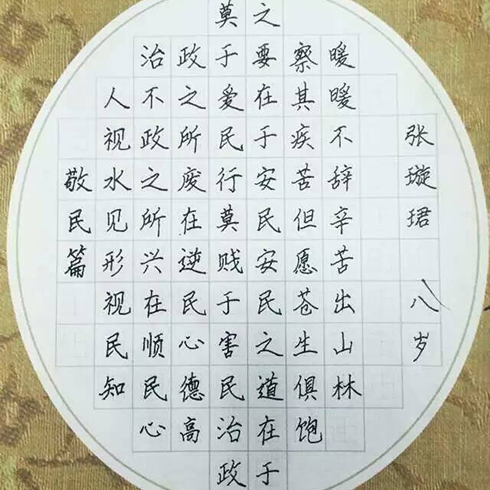 敬民篇
人视水见形视民知
治不政之所兴在顺民心
政之所废在逆民心德高
莫于爱民行莫贱于害民治政
之要在于安民安民之道在于
察其疾苦但愿苍生俱饱
暖暖不辞辛苦出山林
张璇珺 八岁